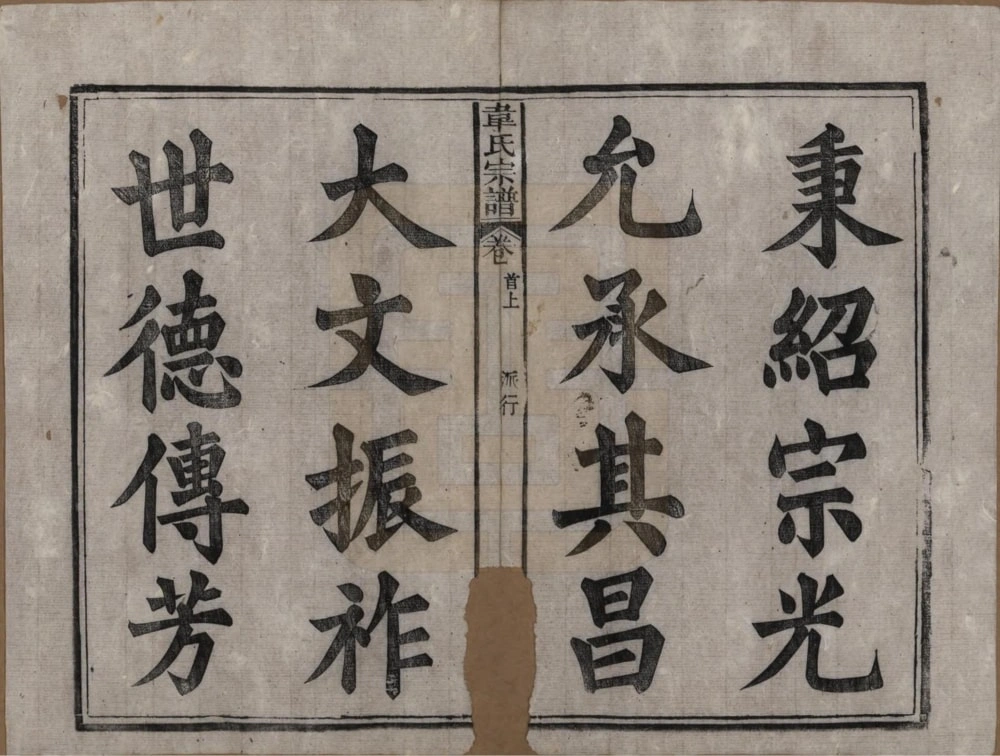 秉紹宗光
允承其昌
韋氏宗譜
卷 首上 派行
大文振祚
世德傳芳